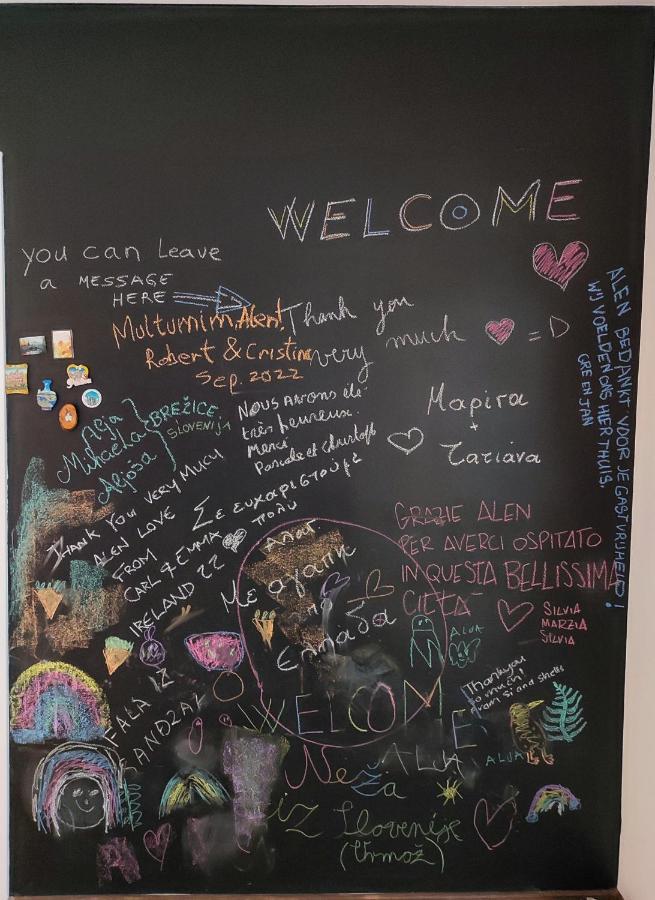 WELCOME
you can Leave
a MESSAGE
HERE
Thank you
very much =D
Multumim, Alen!
Robert & Cristina
Sep. 2022
ALEN BEDANKT VOOR JE GASTVRIJHEID!
WIJ VOELDEN ONS HIER THUIS.
GRE EN JAN
Alja
Mihaela
Aljoša
BREŽICE,
SLOVENIJA
NOUS AVONS été
très heureux.
Merci
Pascale et christophe
Μαρίνα
+
Τατιάνα
THANK YOU VERY MUCH
ALEN LOVE
FROM
CARL & EMMA
IRELAND 22
Σε ευχαριστούμε
πολύ
Με αγάπη
από
Ελλάδα
GRAZIE ALEN
PER AVERCI OSPITATO
IN QUESTA BELLISSIMA
CITTÀ
SILVIA
MARZIA
SILVIA
ALJA
Thank you
so much!
from Si and Shells
HVALA IZ
WELCOME
ALJA
ALJA
Neža
iz Slovenije
(Ormož)